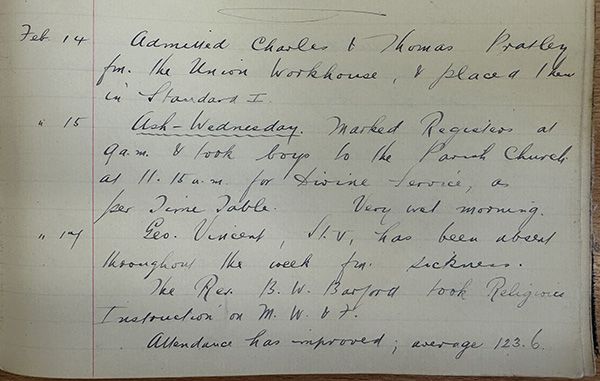 Feb. 14 Admitted Charles & Thomas Pratley
fm. the Union Workhouse, & placed them
in Standard I.
" 15 Ash-Wednesday. Marked Registers at
9 a.m. & took boys to the Parish Church
at 11.15 a.m. for Divine Service, as
per Time Table. Very wet morning.
" 17 Geo. Vincent, St. V, has been absent
throughout the week fm. sickness.
The Rev. B. W. Barford took Religious
Instruction on M. W. & F.
Attendance has improved; average 123.6.